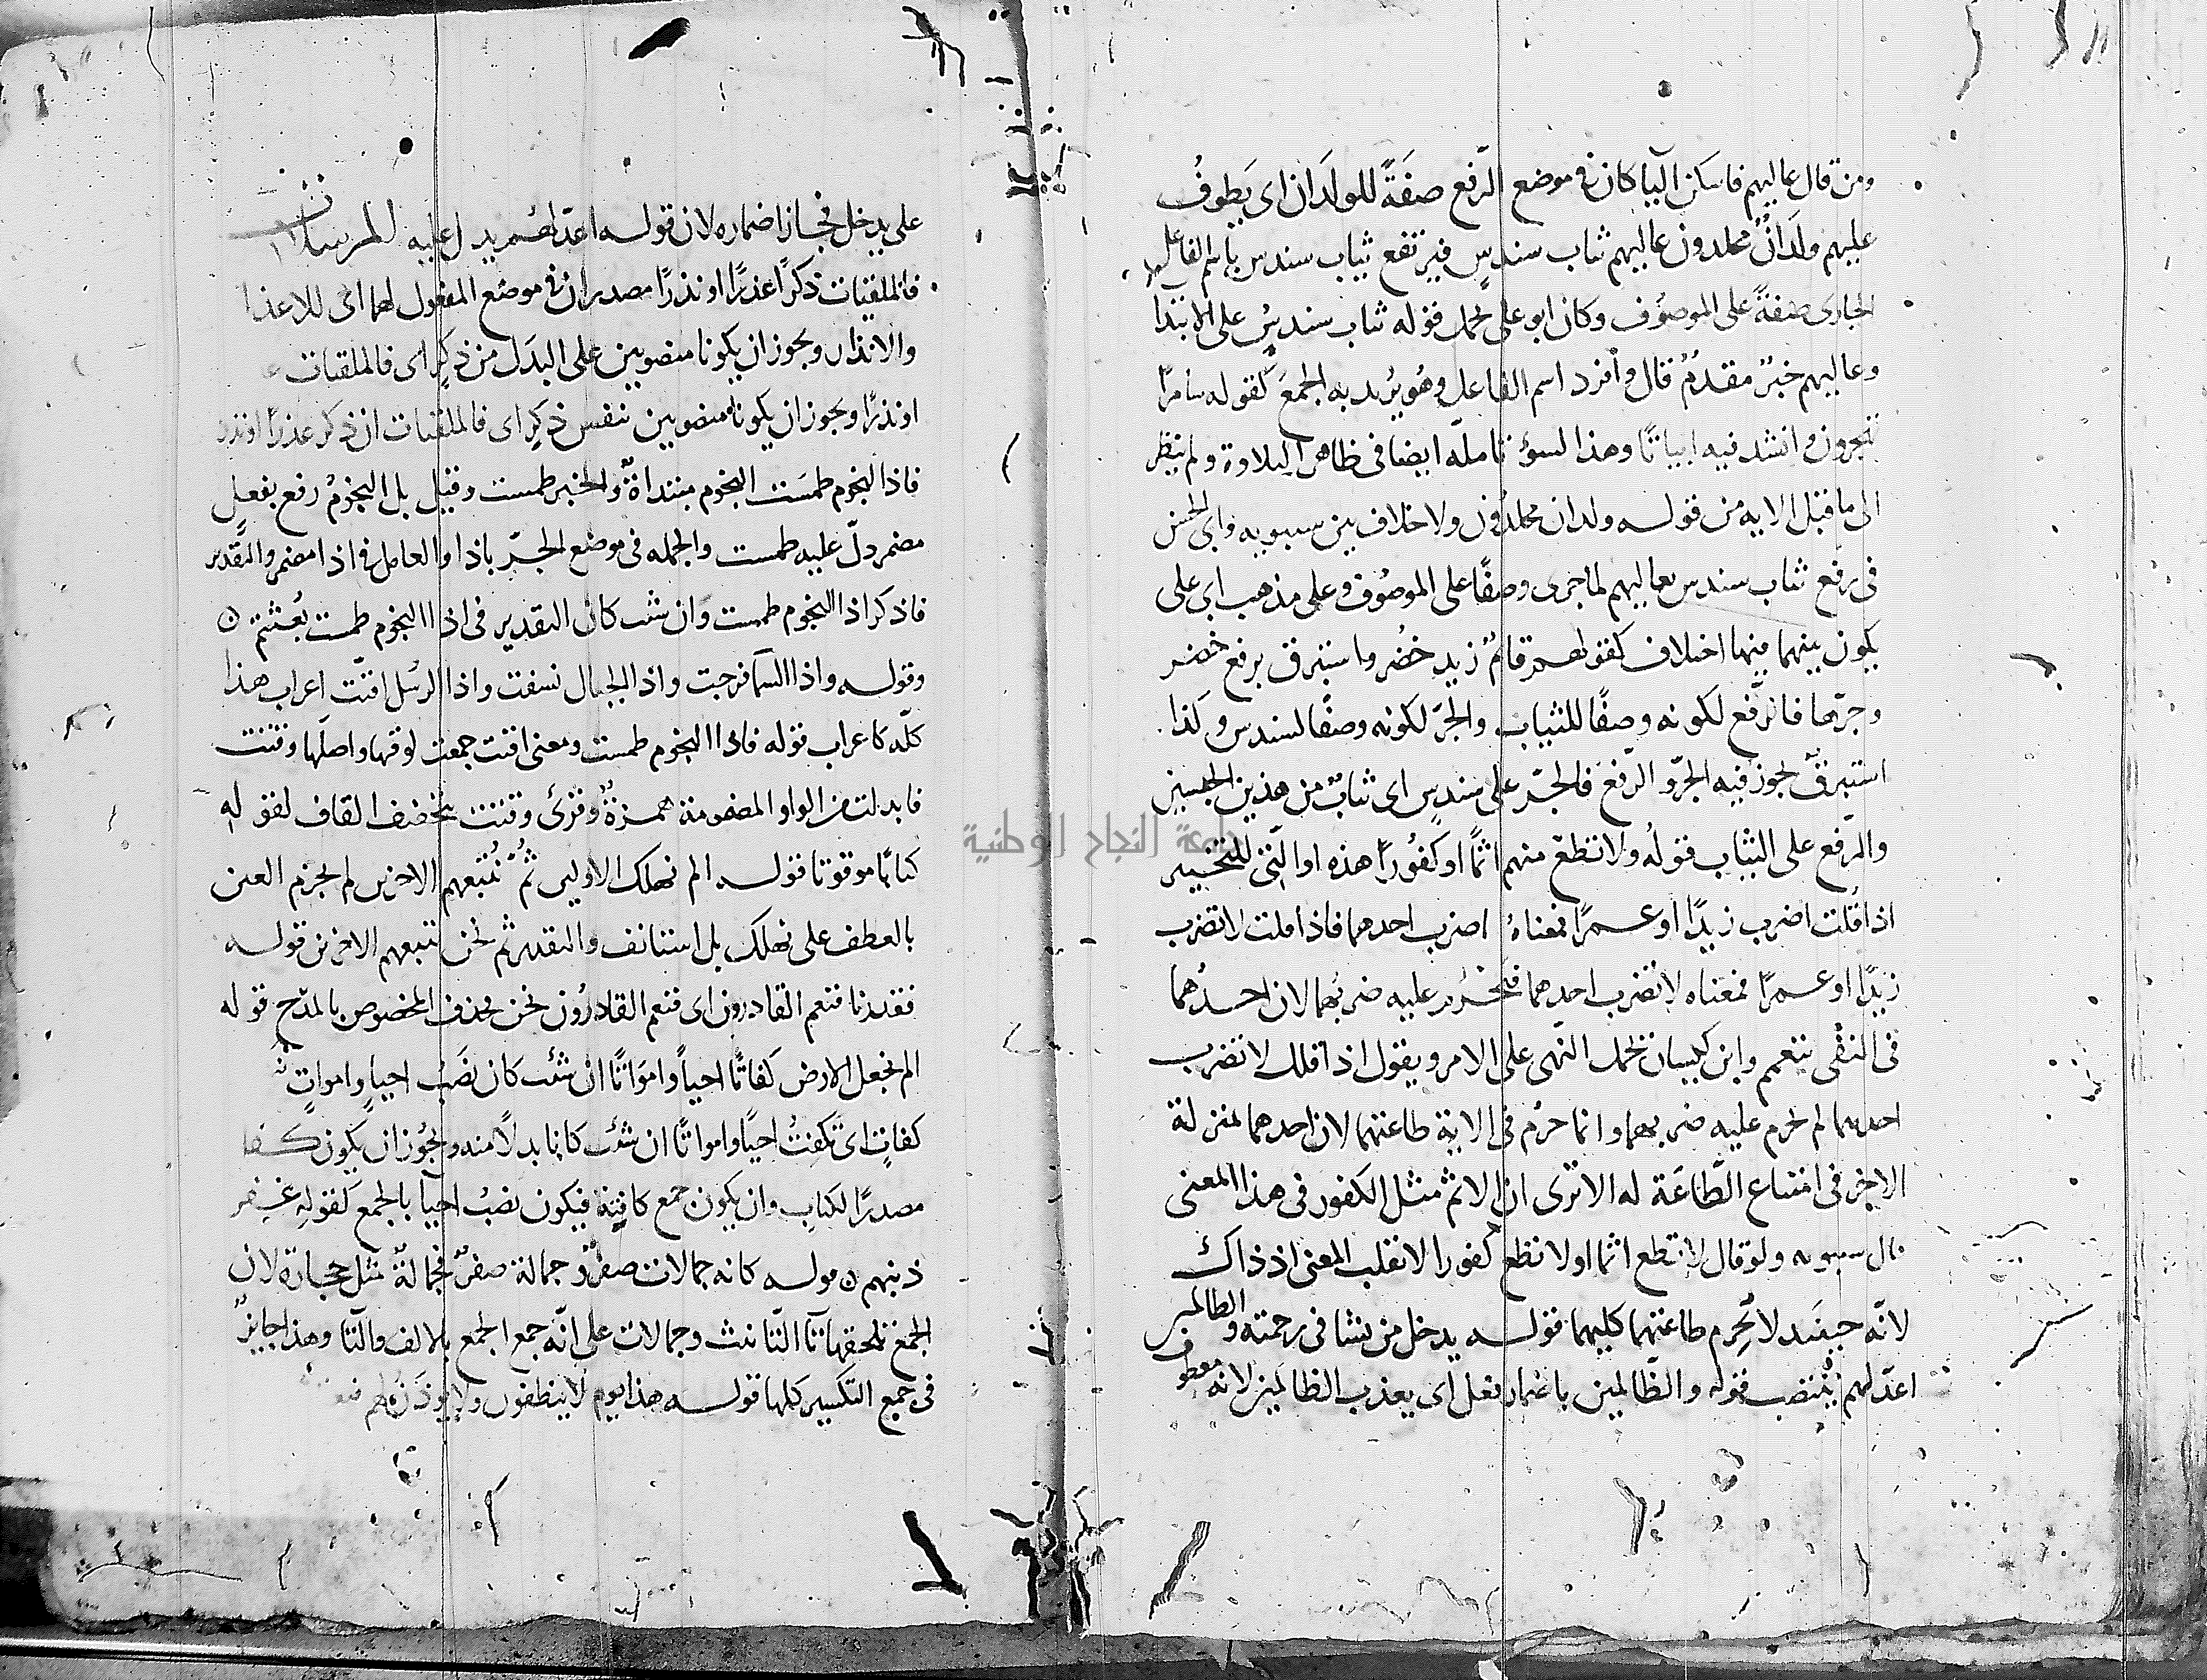 ومن قال عاليهم فاسكن اليا كان في موضع الرّفع صفَةً للولَدان اى يَطوفُ
عليهم ولدَانٌ مخلدون عاليهم ثياب سندسٍ فيرتفع ثياب سندس باسم الفاعل
الجارى صفةً على الموصُوف وكان ابو على يحمل قوله ثياب سندسٍ على الابتدا
وعاليهم خبرٌ مقدمٌ قال وأفرد اسم الفاعل وهُو يُريد به الجمعَ كقوله سامرًا
تهجرون وانشد فيه ابياتًا وهذا لسؤ تاملّه ايضا فى ظاهر التلاوة ولم ينظر
الى ما قبل الايه من قوله ولدان مخلدُون ولا خلاف بين سيبويه وابى الحسن
فى رفع ثياب سندس بعاليهم لما جرى وصفًا على الموصُوف وعلى مذهب ابى على
يكون بينهما فيها اختلاف كقولهم قائمٌ زيد خضُر واستبرق برفع خضر
وجرّها فالرّفع لكونه وصفًا للثياب والجرّ لكونه وصفًا لسندس وكذا
استبرقٌ يجوز فيه الجرّ والرّفع فالجرّ على سندسٍ اى ثيابٌ من هذين الجنسين
والرّفع على الثياب قولُه ولا تطع منهم اثمًا او كفُورًا هذه او الّتى للتخيير
اذا قُلت اضرب زيدًا او عمرًا فمعناهُ اضرب احدهما فاذا قلت لا تضرب
زيدًا او عمرًا فمعناه لا تضرب احدهما فيحرُم عليه ضربُهما لان احدُهما
فى النفى يتعمم وابن كيسان يحمل النّهى على الامر ويقول اذا قلت لا تضرب
احدهما لم يحرم عليه ضربهما وانما حرُم فى الاية طاعتهما لان احدهما بمنزلة
الاخر فى امتناع الطّاعَة له الا ترى ان الاثم مثل الكفور فى هذا المعنى
قال سيبويه ولو قال لا تطع اثما او لا تطع كفورا لانقلب المعنى اذ ذاك
لانّه حينئذ لا تحرِم طاعتهما كليهما قوله يدخل من يشا فى رحمته والظالمين
اعدّ لهم ينتصب قوله والظّالمين باضمار فعل اى يعذب الظالمين لانه معطوف
على يدخل فجاز اضماره لان قوله اعدّ لهُم يدل عليه المرسلات
فالملقيات ذكرًا عذرًا او نذرًا مصدران فى موضع المفعول لهما اى للاعذا
والانذار ويجوز ان يكونا منصوبين على البدَل من ذكرًا اى فالملقيات
او نذرًا ويجوز ان يكونا منصوبين بنفس ذكرٍ اى فالملقيات ان ذكر عذرًا او نذر
فاذا النجوم طمسَت النجوم مبتداةٌ والخبر طمست وقيل بل النجومُ رفع بفعلٍ
مضمر دلّ عليه طمست والجمله فى موضع الجرّ باذا والعامل فى اذا مضمر والتقدير
فاذكر اذا النجوم طمست وان شت كان التقدير فى اذا النجوم طمست بُعثتم ن
وقوله واذا السما فرجت واذا الجبال نسفت واذا الرسُل اقتّت اعراب هذا
كلّه كاعراب قوله فاذا النجوم طمست ومعنى اقتت جمعت لوقتها واصلُها وقتت
فابدلت من الواو المضمومة همزةٌ وقرئ وقتت بتخفيف القاف لقوله
كتابًا موقوتا قوله الم نهلك الاولين ثُمّ نُتبعهم الاخرين لم يجزم العين
بالعطف على نهلك بل استانف والتقدير ثم نحن نتبعهم الاخرين قوله
فقدرنا فنعم القادرون اى فنعم القادرُون نحن بحذف المخصوص بالمدح قوله
الم نجعل الارض كفاتًا احياً وامواتًا ان شئت كان نصَبُ احياٍ وامواتٍ
كفاتٍ اى تكفتُ احيًا وامواتًا ان شئت كانا بدلًا منه ويجُوز ان يكون كفا
مصدرًا لكتابٍ وان يكون جمع كافِتة فيكون نصبُ احياً بالجمع كقوله غفر
ذنبهم ن قوله كانه جمالات صفرٌ وجمالة صفرٌ فجمالةٌ مثل حجارة لان
الجمعَ تلحقها تا التانيث وجمالات على انّه جمع الجمع بالالف والتا وهذا جايزٌ
فى جمع التكسير كلها قوله هذا يوم لا ينطقون ولا يوذَن لهم
جامعة النجاح الوطنية